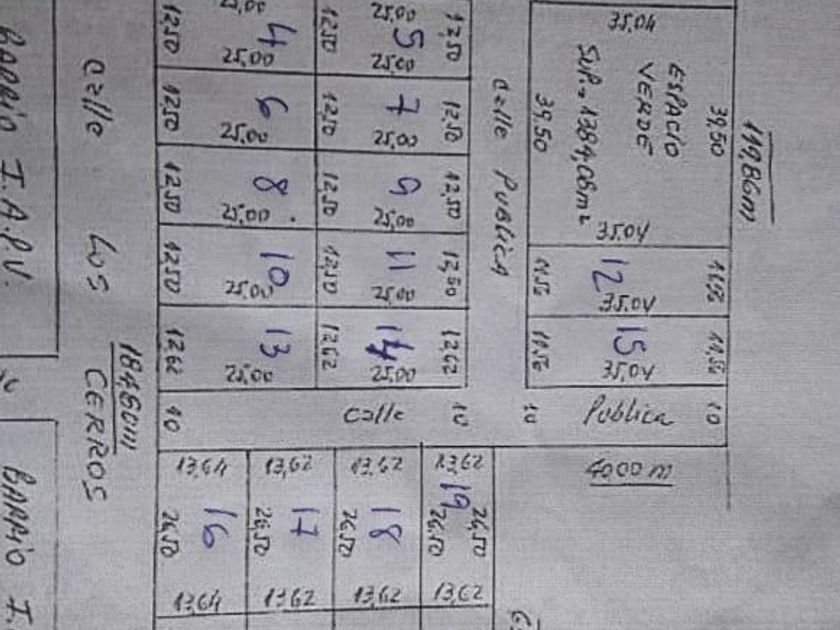 25,00
4
25,00
12,50
12,50
25,00
5
25,00
12,50
35,04
ESPACIO
VERDE
Sup.= 1384,08 m²
39,50
39,50
35,04
119,86m
12,50
6
25,00
12,50
7
25,00
12,50
12,50
8
25,00
12,50
9
25,00
12,50
12,50
10
25,00
12,50
11
25,00
12,50
12,62
13
25,00
12,62
14
25,00
12,62
Calle Publica
11,52
12
35,04
11,52
11,52
15
35,04
11,52
10
Calle
10
10
Publica
10
4000 m
13,64
16
26,50
13,64
13,62
17
26,50
13,62
13,62
18
26,50
13,62
13,62
19
26,50
26,50
13,62
Calle Los CERROS
184,60m
BARRIO I.A.P.V.
BARRIO I.